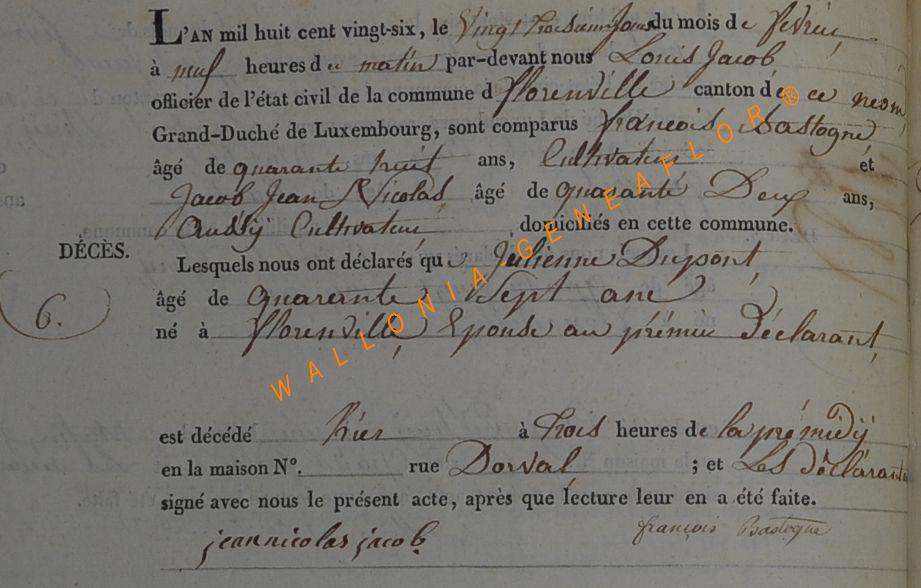 L'AN mil huit cent vingt-six, le Vingt troisieme Jour du mois de fevrier
à neuf heures du matin par-devant nous Louis Jacob
officier de l'état civil de la commune d florenville canton de ce nom
Grand-Duché de Luxembourg, sont comparus francois Bastogne
âgé de quarante huit ans, Cultivateur et
Jacob Jean Nicolas âgé de quarante Deux ans,
Aussy Cultivateur domiciliés en cette commune.
DÉCÈS.
Lesquels nous ont déclarés que Julienne Dupont
âgé de quarante Sept ans
6.
né à florenville Epouse au prémier Déclarant
WALLONIA GENEAFLOR®
est décédé hier à trois heures de laprémidÿ
en la maison N°. rue Dorval ; et Les déclarants
signé avec nous le présent acte, après que lecture leur en a été faite.
jean nicolas jacob
françois Bastogne